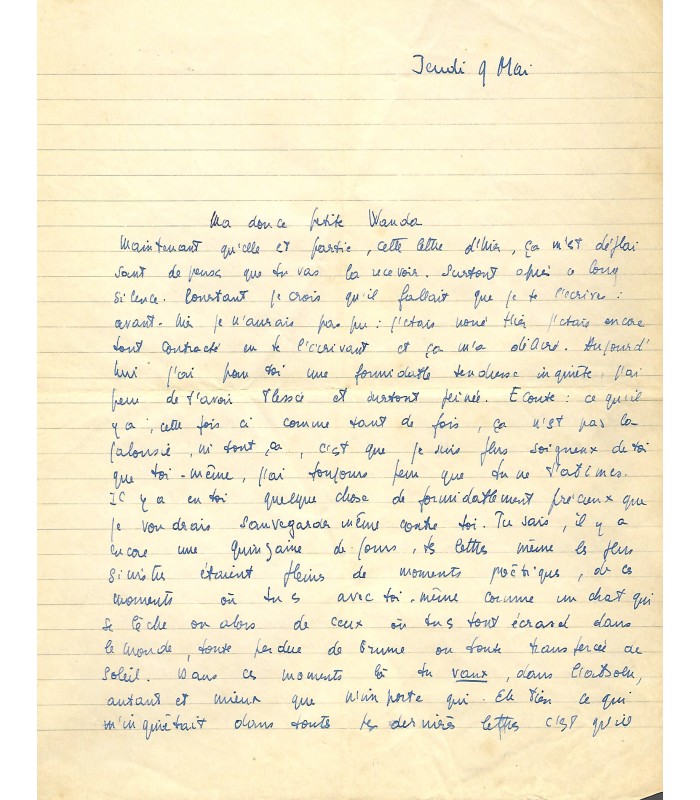 Jeudi 9 Mai
Ma douce petite Wanda
Maintenant qu'elle est partie, cette lettre d'hier, ça m'est déplai
sant de penser que tu vas la recevoir. Surtout après ce long
silence. Pourtant je crois qu'il fallait que je te l'écrive :
avant-hier je n'aurais pas pu : j'étais noué hier j'étais encore
tout contracté en te l'écrivant et ça m'a délivré. Aujourd'
hui j'ai pour toi une formidable tendresse inquiète, j'ai
peur de t'avoir blessée et surtout peinée. Ecoute : ce qu'il
y a, cette fois ci comme tant de fois, ça n'est pas la
jalousie, ni tout ça, c'est que je suis plus soigneux de toi
que toi-même, j'ai toujours peur que tu ne t'abîmes.
Il y a en toi quelque chose de formidablement précieux que
je voudrais sauvegarder même contre toi. Tu sais, il y a
encore une quinzaine de jours, tes lettres même les plus
sinistres étaient pleines de moments poétiques, de ces
moments où tu es avec toi-même comme un chat qui
se lèche ou alors de ceux où tu es tout écrasée dans
le monde, toute perdue de brume ou toute transpercée de
soleil. Dans ces moments là tu vaux, dans l'absolu,
autant et mieux que n'importe qui. Eh bien ce qui
m'inquiétait dans toutes tes dernières lettres c'est qu'il